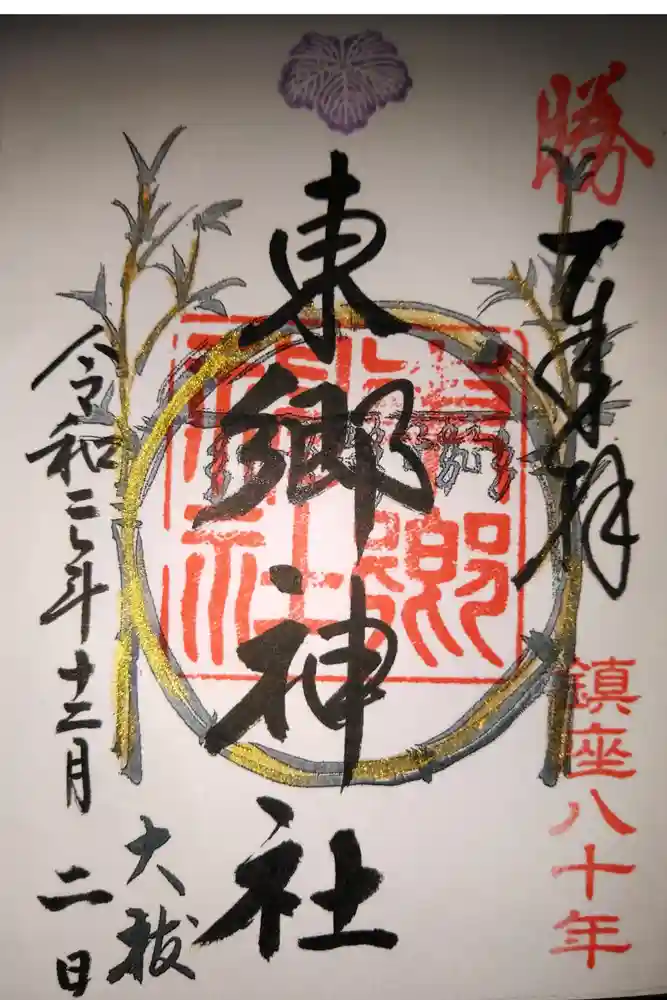 勝
奉拝
鎮座八十年
東郷神社
大祓
令和二年十二月
二日